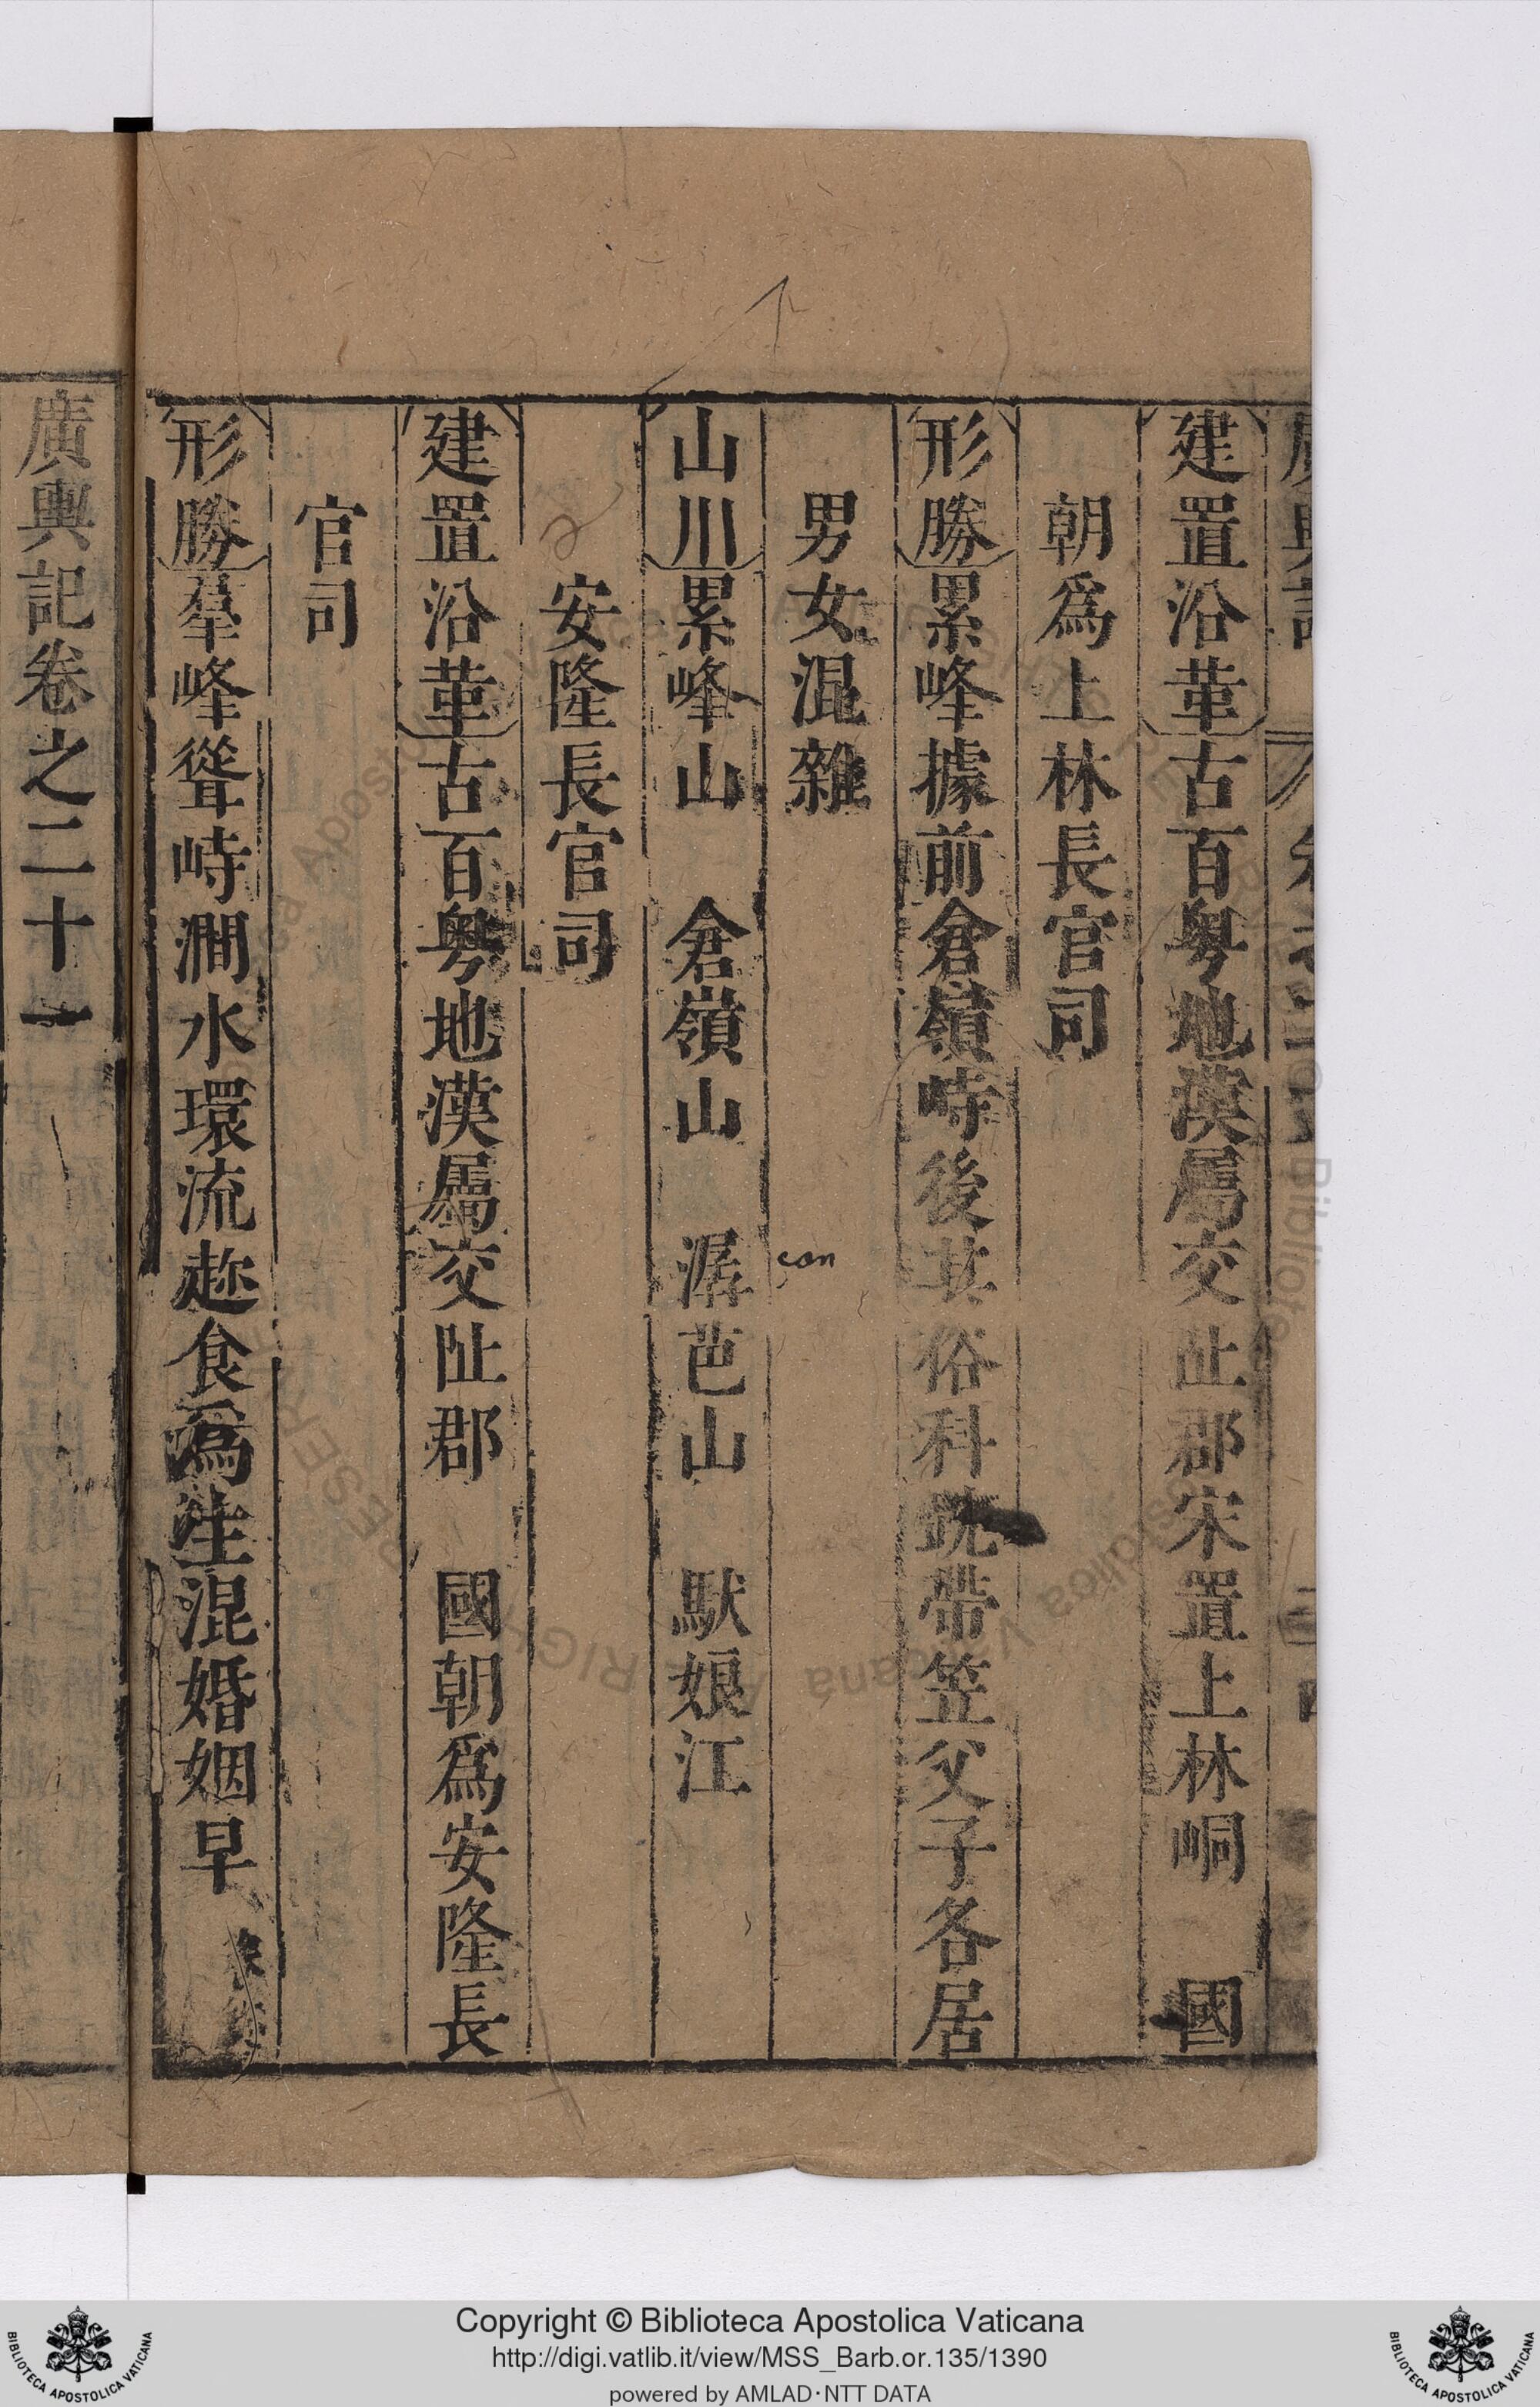 建置沿革古百粤地漢屬交阯郡宋置上林峒 國
朝爲上林長官司
形勝累峰據前倉嶺峙後其俗科銃帶笠父子各居
男女混雜
山川累峰山 倉嶺山 潺芭山 馱娘江
安隆長官司
建置沿革古百粤地漢屬交阯郡 國朝爲安隆長
官司
形勝羣峰聳峙澗水環流趂食爲生混婚姻早
廣輿記卷之二十一
can
Copyright © Biblioteca Apostolica Vaticana
http://digi.vatlib.it/view/MSS_Barb.or.135/1390
powered by AMLAD·NTT DATA
BIBLIOTECA APOSTOLICA VATICANA
BIBLIOTECA APOSTOLICA VATICANA